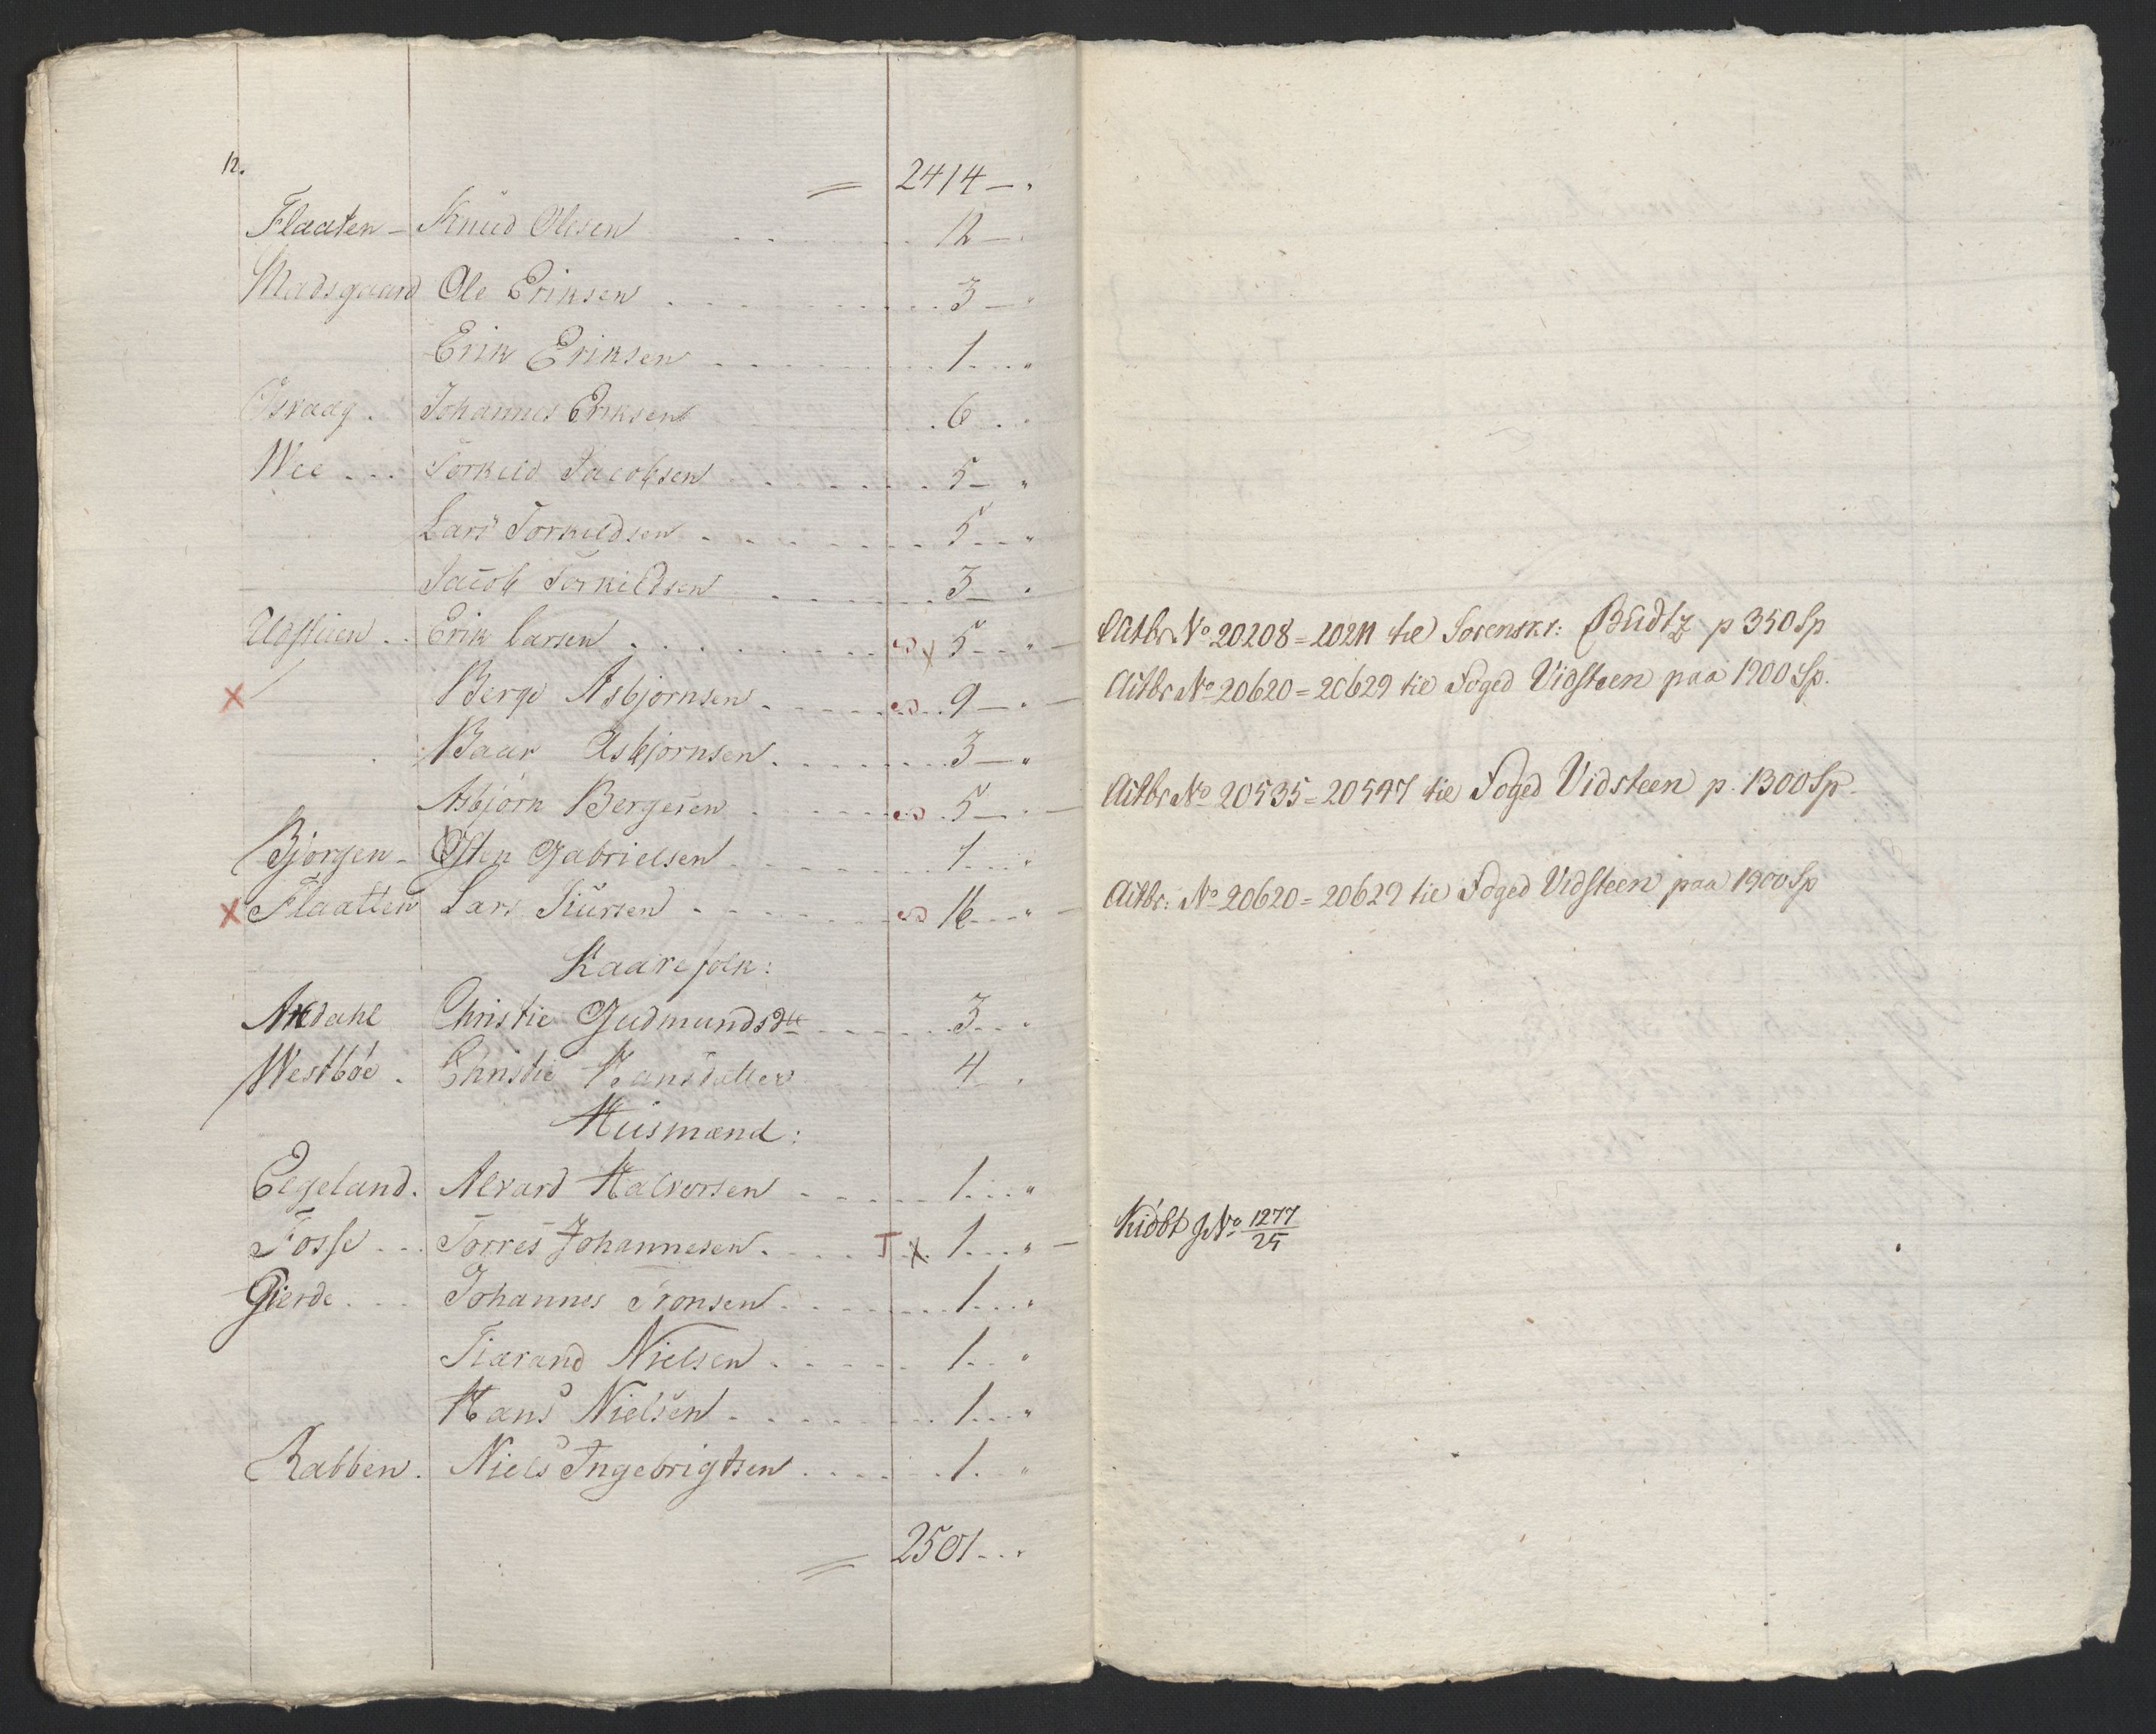 12.
= 2414 — "
Flaaten – Knud Olesen . . . 12 — "
Madsgaard Ole Eriksen . . . 3 — "
Erik Eriksen . . . 1 . . . "
Osvaag . Johannes Eriksen . 6 . . "
Wee . . . Torkild Jacobsen . . . 5 — "
Lars Torkildsen . . . 5 . . "
Jacob Torkildsen . . . 3 — "
Udsteen . . Erik Larsen . . . x 5 . . " —
x Berge Asbjørnsen . . . 9 — " —
Baar Asbjørnsen . . . 3 — "
Asbjørn Bergesen . . . 5 — . —
Bjørgen – Østen Gabrielsen . . . 1 . . . "
x Flaatten Lars Siursen . . . 16 . . . " —
Kaarefolk:
Axdahl Christie Gudmundsdtr . . . 3 . . . "
Westbøe . Christie Hansdatter 4 .
Huusmænd:
Elgeland . Alvard Halvorsen . . . 1 . . . "
Fosse . . . Torres Johannesen . . . T x 1 . . . " —
Gierde . . . Johannes Tronsen . . . 1 . . . "
Tiærand Nielsen . . . 1 . . . "
Hans Nielsen . . . 1 . . . "
Rabben . Niels Ingebrigtsen . . . 1 . . "
= 2501 . . "
No 20208 = 20211 til Sorenskr: Budtz p 350 Sp
No 20620 = 20629 til Foged Vidsteen paa 1900 Sp.
No 20535 = 20547 til Foged Vidsteen p. 1300 Sp.
No 20620 = 20629 til Foged Vidsteen paa 1900 Sp
Kiøbt J No 1277/25